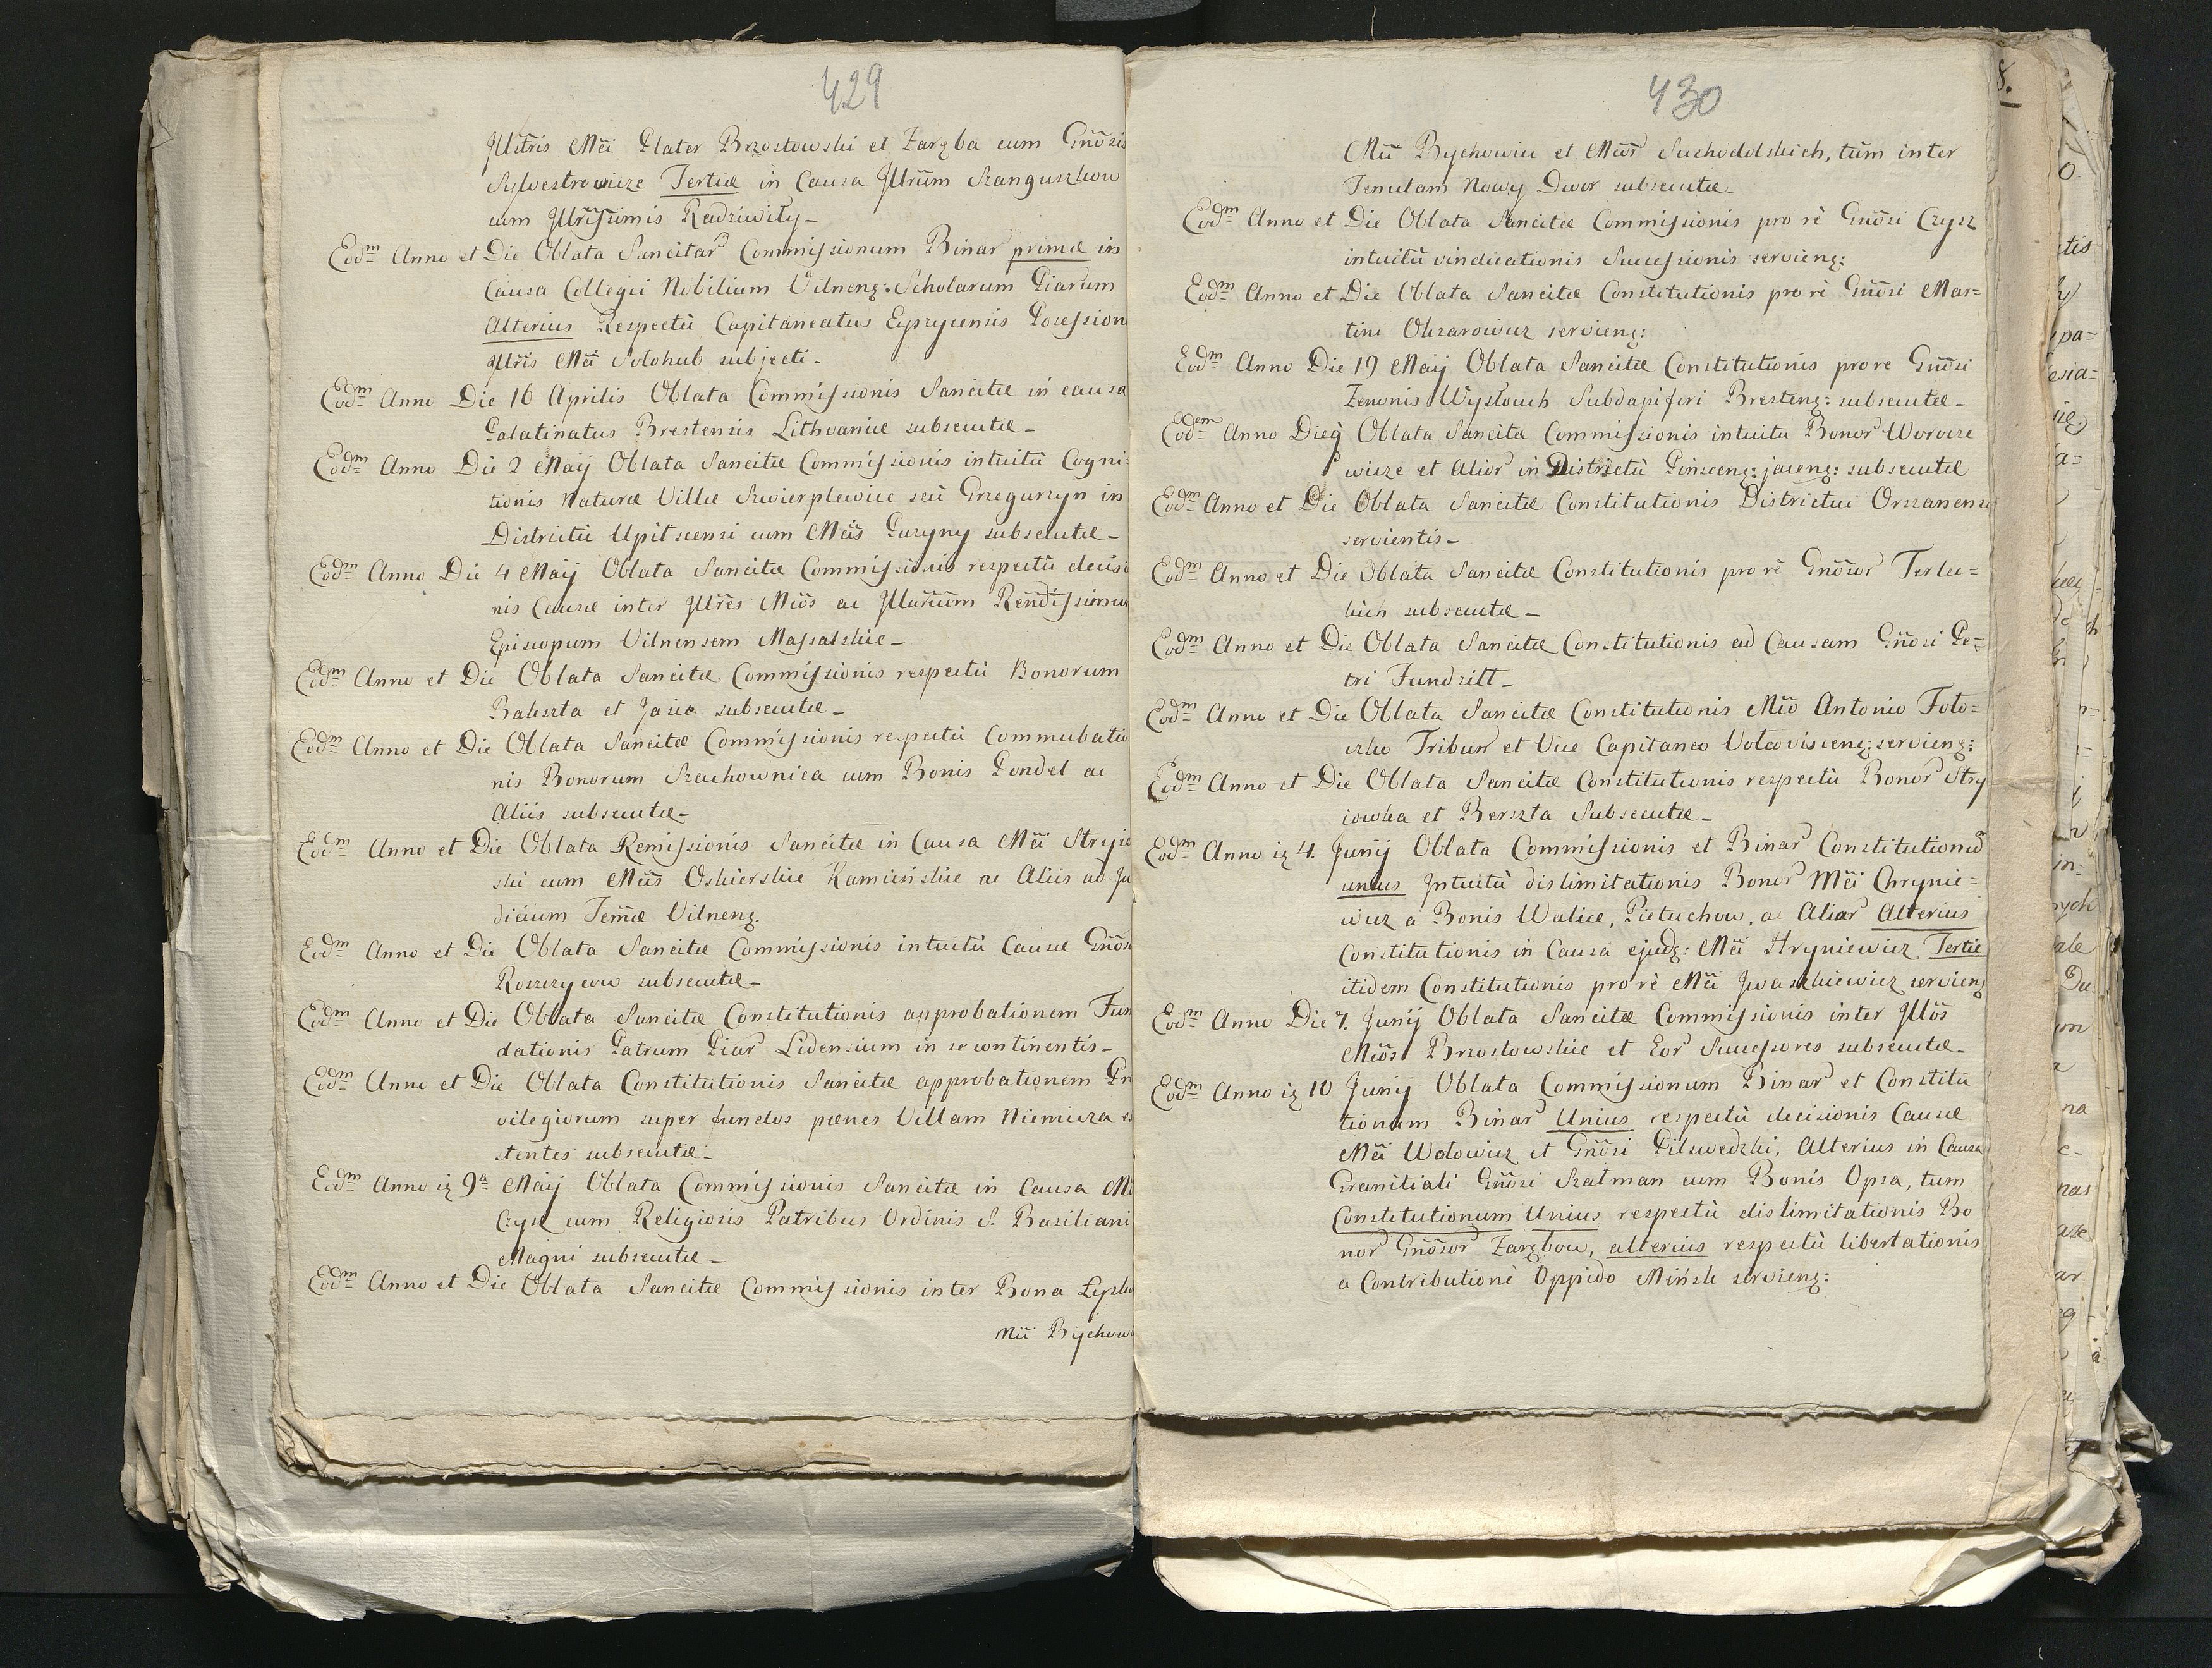 429
Jllstris Mci Plater Brzostowski et Zaręba cum Gnōsi
Sylvestrowicze Tertiæ in Causa Jllrium Sanguszkow
cum Jllrissimis Radziwiły_
Eodm Anno et Die Oblata Sancitar Commissionum Binar primæ in
Causa Collegii Nobilium Vilneng: Scholarum Piarum
Alterius Respectu Capitaneatus Eyszyscensis Posession
Jllris Mci Sołohub subjecti_
Eodm Anno Die 16 Aprilis Oblata Commissionis Sancitæ in causa
Palatinatus Brestensis Lithvaniæ subsecutæ_
Eodm Anno Die 2 Maij Oblata Sancitæ Commissionis intuitu Cogni=
tionis Naturæ Villæ Szwierplewicе seu Grzegurzyn in
Districtu Upitscensi cum Mcis Puzyny subsecutæ_
Eodm Anno Die 4 Maij Oblata Sancitæ Commissionis respectu decisi
nis Causæ inter Jllres Mcos ac Jllmum Rendissimum
Episcopum Vilnensem Massalskie_
Eodm Anno et Die Oblata Sancitæ Commissionis respectu Bonorum
Bakszta et Jasie subsecutæ_
Eodm Anno et Die Oblata Sancitæ Commissionis respectu Commutatio
nis Bonorum Szachownica cum Bonis Pondel ac
Aliis subsecutæ_
Eodm Anno et Die Oblata Remissionis Sancitæ in Causa Mci Stryie
ski cum Mcis Oskierskie Kamieńskie ac Aliis ad Ju
dicium Terræ Vilneng.
Eodm Anno et Die Oblata Sancitæ Commissionis intuitu Causæ Gnōs
Roszczycow subsecutæ_
Eodm Anno et Die Oblata Sancitæ Constitutionis approbationem Fun
dationis Patrum Piar Lidensium in se continentis_
Eodm Anno et Die Oblata Constitutionis Sancitæ approbationem Pri
vilegiorum super fundos pœnes Villam Niemieza ex
stentes subsecutæ_
Eodm Anno iz 9a Maij Oblata Commissionis Sancitæ in Causa Mc
Czysz cum Religiosis Patribus Ordinis S. Basiliani
Magni subsecutæ_
Eodm Anno et Die Oblata Sancitæ Commissionis inter Bona Lysko
Mci Bychow
430
Mci Bychowiec et Mcor Suchodolskich, tum inter
Tenutam Nowy Dwor subsecutæ_
Eodm Anno et Die Oblata Sancitæ Commissionis pro rē Gnōsi Czysz
intuitu vindicationis Successionis servieng:
Eodm Anno et Die Oblata Sancitæ Constitutionis pro rē Gnōsi Mar=
tini Okzarowicz servieng:
Eodm Anno Die 19 Maij Oblata Sancitæ Constitutionis pro re Gnōsi
Zenonis Wysłouch Subdapiferi Bresteng: subsecutæ_
Eodem Anno Dieq Oblata Sancitæ Commissionis intuitu Bonor Worocе
wicze et Alior in Districtu Pinsceng: jaceng: subsecutæ
Eodm Anno et Die Oblata Sancitæ Constitutionis Districtui Orszanensi
servientis_
Eodm Anno et Die Oblata Sancitæ Constitutionis pro rē Gnōsor Terlec=
kich subsecutæ_
Eodm Anno et Die Oblata Sancitæ Constitutionis ad Causam Gnōsi Pe=
tri Fundzitt_
Eodm Anno et Die Oblata Sancitæ Constitutionis Mco Antonio Toło=
czko Tribun et Vice Capitaneo Volcovisceng: servieng:
Eodm Anno et Die Oblata Sancitæ Constitutionis respectu Bonor Stry
iowka et Berszta Subsecutæ_
Eodm Anno iz 4. Junij Oblata Commissionis et Binar Constitutionu
unius Jntuitu dislimitationis Bonor Mci Chrynie=
wicz a Bonis Walice, Pietuchow, ac Aliar Alterius
Constitutionis in Causa ejudz: Mci Hryniewicz Tertie
itidem Constitutionis pro rē Mci Jwaszkiewicz servieng
Eodm Anno Die 7. Junij Oblata Sancitæ Commissionis inter Jllōs
Mcos Brzostowskie et Eor Successores subsecutæ_
Eodm Anno iz 10 Junij Oblata Commissionum Binar et Constitu
tionum Binar Unius respectu decisionis Causæ
Mci Wołowicz et Gnōsi Pilswedzki, Alterius in Causa
Granitiali Gnōsi Szalman cum Bonis Opsa, tum
Constitutionum Unius respectu dislimitationis Bo
nor Gnōsor Zarębow, alterius respectu libertationis
a Contributione Oppido Mińsk servieng: